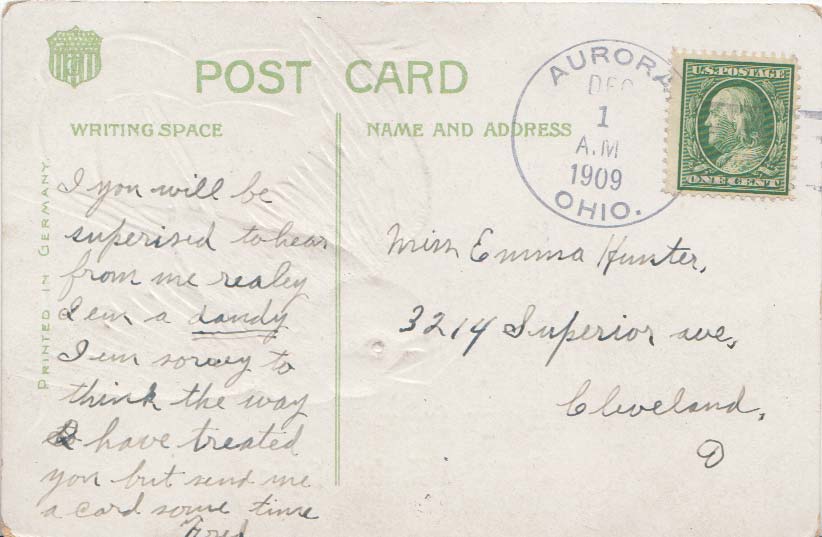 POST CARD
WRITING SPACE
NAME AND ADDRESS
PRINTED IN GERMANY.
AURORA
DEC
1
A.M
1909
OHIO.
U.S. POSTAGE
ONE CENT
I you will be
superised to hear
from me realey
I em a dandy
I em sorrey to
think the way
I have treated
you but send me
a card some time
Fred
Miss Emma Hunter,
3214 Superior ave,
Cleveland,
O